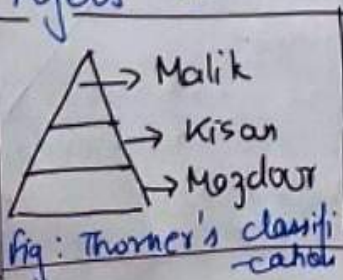 Malik
Kisan
Mozdour
fig: Thorner's classifi
-cation